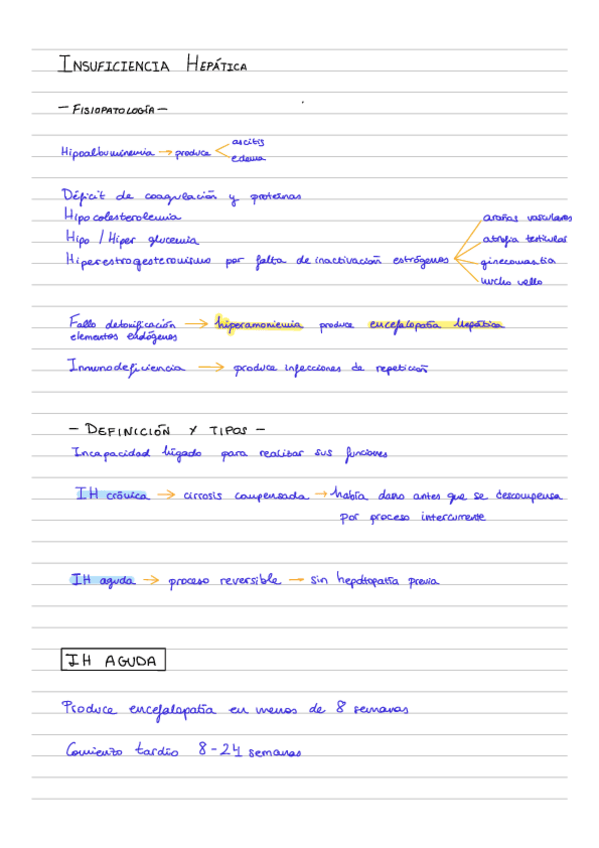 INSUFICIENCIA HEPÁTICA
- FISIOPATOLOGÍA -
Hipoalbuminemia → produce
ascitis
edema
Déficit de coagulación y proteínas
Hipocolesterolemia
Hipo / Hiper glucemia
Hiperestrogesteronismo por falta de inactivación estrógenos
arañas vasculares
atrofia testicular
ginecomastia
mucho vello
Fallo detoxificación → hiperamoniemia produce encefalopatía hepática
elementos endógenos
Inmunodeficiencia → produce infecciones de repetición
- DEFINICIÓN Y TIPOS -
Incapacidad hígado para realizar sus funciones
IH crónica → cirrosis compensada → había daño antes que se descompensa
por proceso intercurrente
IH aguda → proceso reversible → sin hepatopatía previa
IH AGUDA
Produce encefalopatía en menos de 8 semanas
Comienzo tardío 8-24 semanas